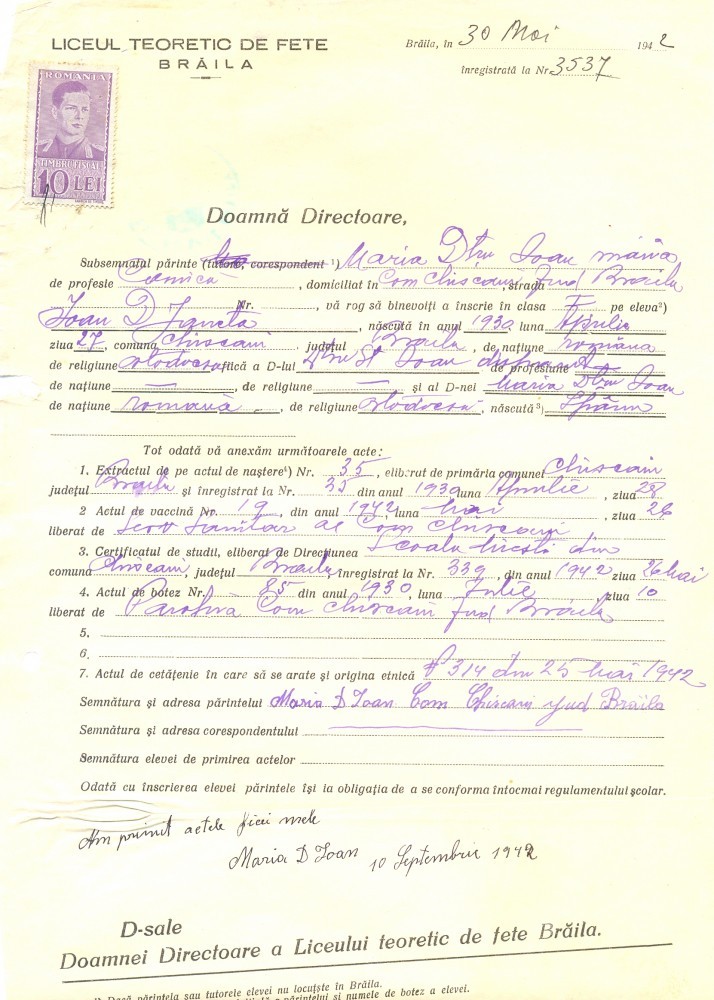 LICEUL TEORETIC DE FETE
BRĂILA
Brăila, în 30 Mai 1942
înregistrată la Nr. 3537
ROMANIA
TIMBRU FISCAL
10 LEI
Doamnă Directoare,
Subsemnatul părinte (tutore, corespondent ¹) Maria Dtru Ioan mama
de profesie Casnică, domiciliat în Com Chiscani strada Jud Brăila
Nr. , vă rog să binevoiți a înscrie în clasa I pe eleva²)
Ioan D , născută în anul 1930 luna Aprilie
ziua 27, comuna Chiscani județul Braila, de națiune româna
de religiune Otodocsa fiică a D-lui Dtru St Ioan de profesie
de națiune — , de religiune — și al D-nei Maria Dtru Ioan
de națiune romană , de religiune otodocsă , născută³)
Tot odată vă anexăm următoarele acte:
1. Extractul de pe actul de naștere⁴) Nr. 35, eliberat de primăria comunei Chiscani
județul Braila și înregistrat la Nr. 35 din anul 1930 luna Aprilie , ziua 28
2 Actul de vaccină Nr. 19 , din anul 1942 luna Mai , ziua 26
liberat de Serv Sanitar al Com Chiscani
3. Certificatul de studii, eliberat de Direcțiunea Scoala din
comuna Chiscani, județul Braila, înregistrat la Nr. 339 , din anul 1942 ziua 26 Mai
4. Actul de botez Nr. 85 din anul 1930, luna Iulie , ziua 10
liberat de Parohia Com Chiscani Jud Brăila
5.
6.
7. Actul de cetățenie în care să se arate și origina etnică 314 din 25 Mai 1942
Semnătura și adresa părintelui Maria D Ioan Com Chiscani Jud Brăila
Semnătura și adresa corespondentului
Semnătura elevei de primirea actelor
Odată cu înscrierea elevei părintele își ia obligația de a se conforma întocmai regulamentului școlar.
Am primit actele ficei mele
Maria D Ioan 10 Septembrie 1942
D-sale
Doamnei Directoare a Liceului teoretic de fete Brăila.
¹) Dacă părintela sau tutorele elevei nu locuște în Brăila.
a părintelui și numele de botez a elevei.